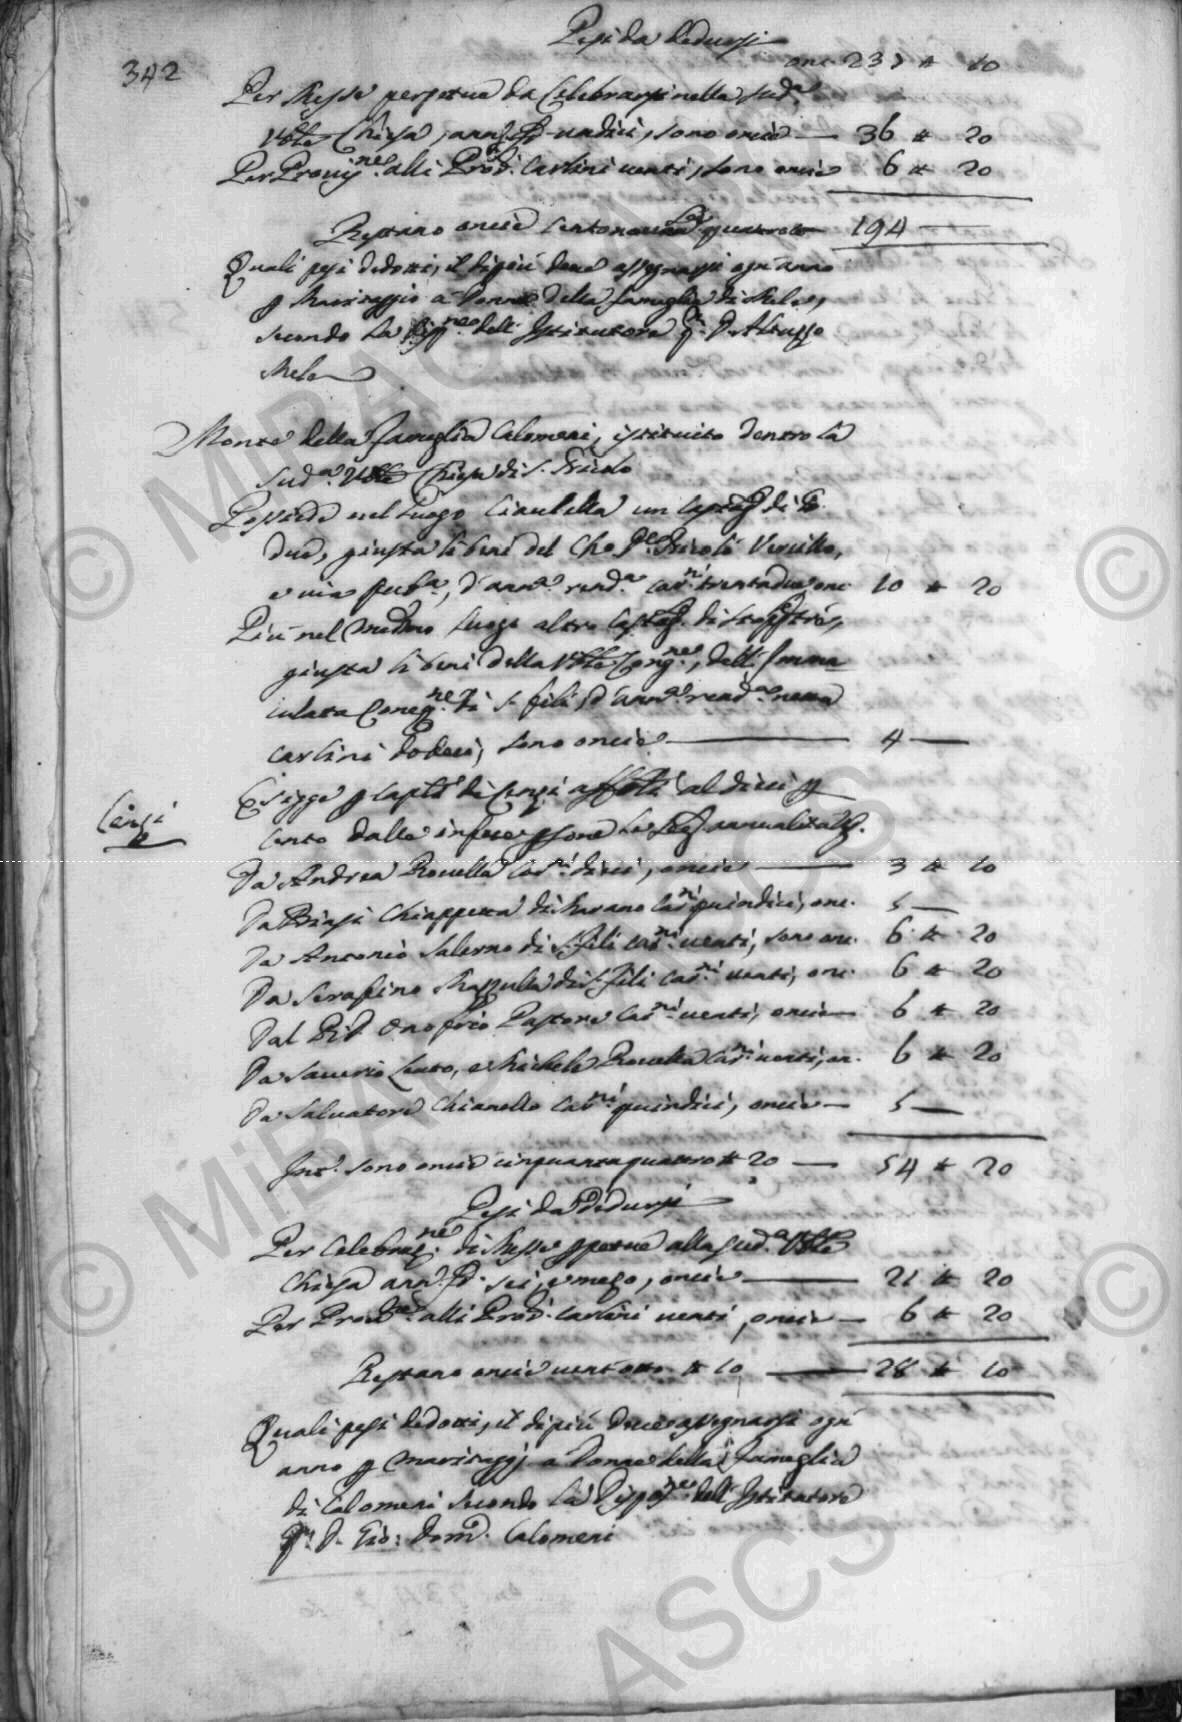 Pesi da dedursi
342
onc. 237 * 10
Per Messe perpetue da Celebrarsi nella sud.a
V.ble Chiesa, ann. D. undici, sono oncie — 36 * 20
Per Provis.ne alli Prod.i Carlini venti, sono oncie 6 * 20
Restano oncie centonovantaquattro — 194 —
Quali pesi dedotti, il dipiù deve assegnarsi ogn'anno
p maritaggio a Donne della famiglia di Mele,
secondo la disp.ne dell'Istitutore q.m D.
Mele
Monte della famiglia Calomeni, istituito dentro la
sud.a V.ble Chiesa di S. Nicola
Possiede nel luogo Ciambella un di
due, giusta li beni del Nicolò Vercillo,
e via pub.a, d'ann.a rend.a car.ni trentadue onc. 10 * 20
Più nel med.mo luogo altro di
giusta li beni della V.ble Cong.ne, dell'Imma
culata Concez.ne di S. Fili, d'ann.a rend.a
carlini dodeci, sono oncie — 4 —
Censi
Esigge p capit.i di Censi al dieci p
cento dalle infrae p̅sone le annualità
Da Andrea Rovella car.ni dieci, oncie — 3 * 10
Da Biasi Chiappetta di Marano car.ni quindici, onc. 5 —
Da Antonio Salerno di S. Fili car.ni venti, sono onc. 6 * 20
Da Serafino Mazzulla di S. Fili car.ni venti, onc. 6 * 20
Dal Onofrio Pastore car.ni venti, oncie — 6 * 20
Da Saverio Lento, e Michele Rovella car.ni venti, on. 6 * 20
Da Salvatore Chianello car.ni quindici, oncie — 5 —
Int.o sono oncie cinquantaquattro * 20 — 54 * 20
Pesi da Dedursi
Per Celebraz.ne di Messe p̅petue alla sud.a V.ble
Chiesa ann. D. sei, e mezo, oncie — 21 * 20
Per alli Prod.i Carlini venti, oncie — 6 * 20
Restano oncie ventotto * 10 — 28 * 10
Quali pesi dedotti, il dipiù deve assegnarsi ogni
anno p maritaggi a Donne della famiglia
di Calomeni secondo la Dispos.ne dell'Istitutore
q.m D. Gio: Dom.o Calomeni
© MiBAC ASCS
© MiBAC ASCS